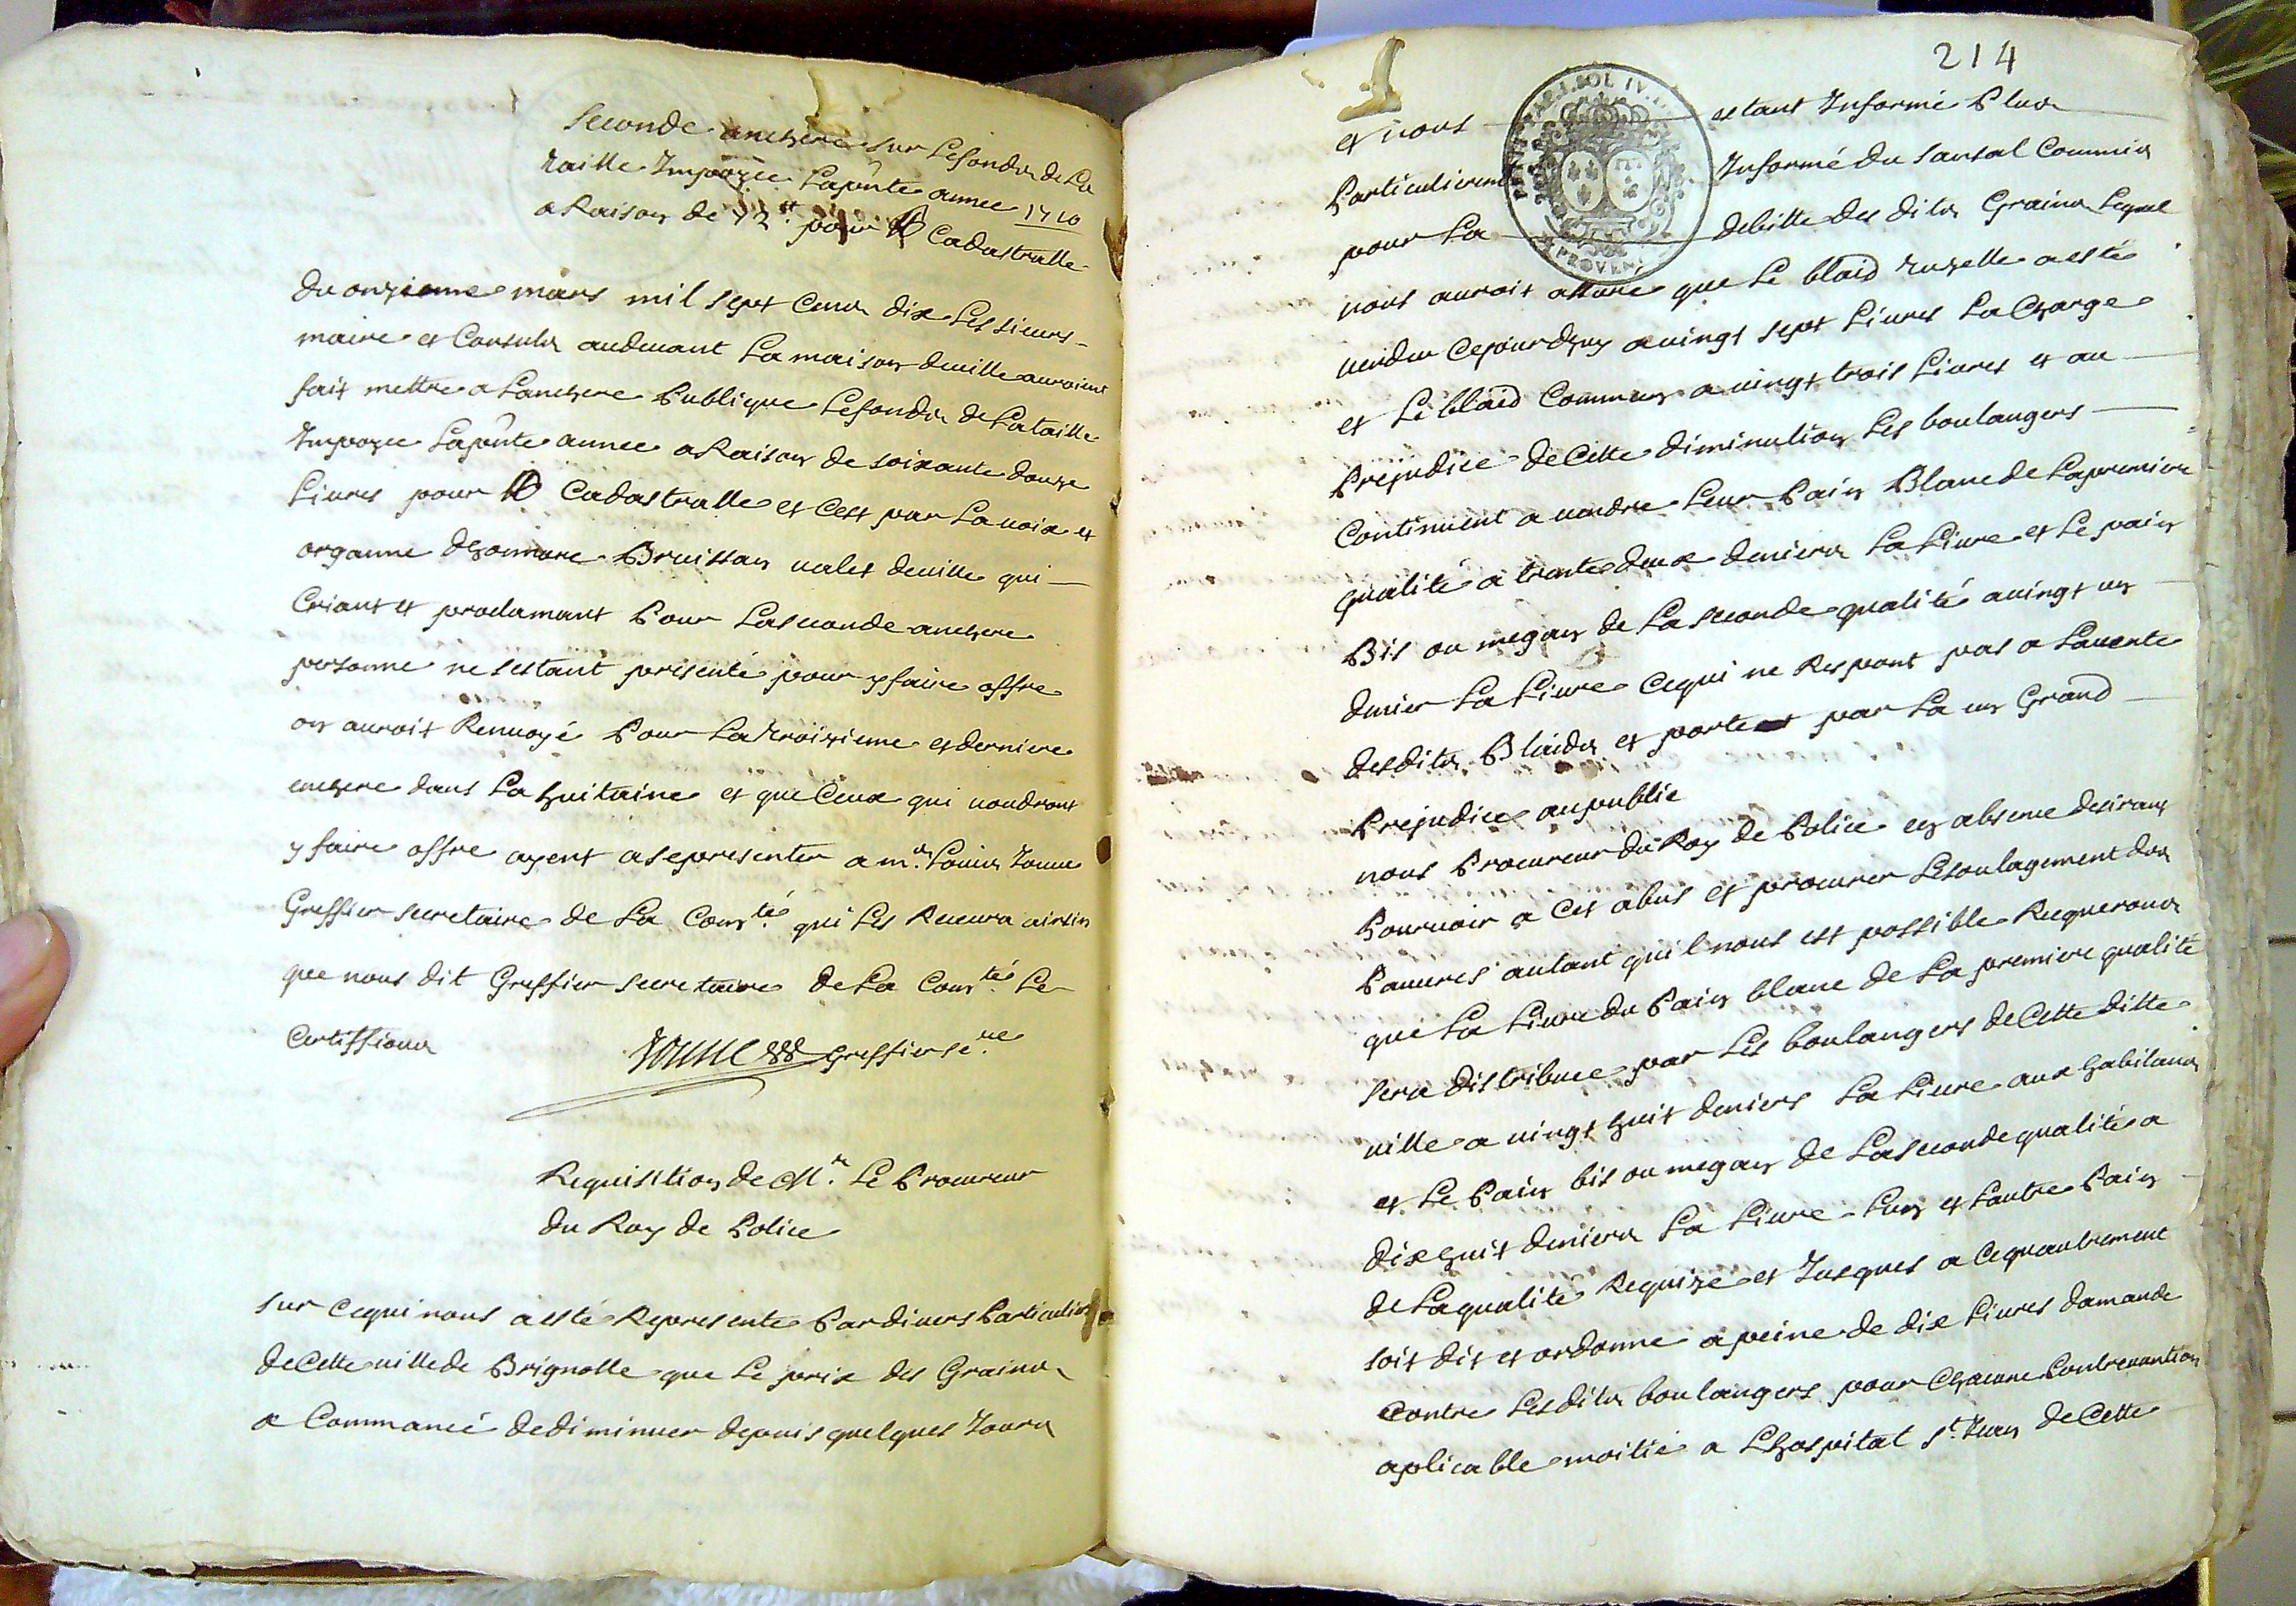 Seconde anchere sur Lesfonds de La
taille Impozée Laprñte année 1710
a Raison de 72ᵗᵗ pour ℔ Cadastralle
du onzieme mars mil sept Cens dix Les sieurs
maire et Consuls audevant La maison deville auroient
fait mettre a Lanchere Publique Lesfonds de Lataille
Impozée Laprñte annee a Raison de soixante douze
Livres pour ℔ Cadastralle et Cest par Lavoix et
organne dhonnore Bruissan valet deville qui
Criant et proclamant Pour Laseconde anchere
personne nesestant presenté pour yfaire offre
on auroit Renvoyé Pour La troizieme et derniere
enchere dans La huitaine et que Ceux qui voudront
y faire offre ayent asepresenter a mᵉ. Louis Jaume
Greffier secretaire de La Comᵗᵉ. qui Les Recevra ainsin
que nous dit Greffier secretaire de La Comᵗᵉ. Le
Certiffions
greffier seʳᵉ
Requisition de Mʳ. Le Procureur
du Roy de Police
sur cequi nous a esté Represente Par divers Particuliers
de Cette ville de Brignolle que Le prix des Grains
a Commancé de diminuer depuis quelques Jours
214
SOL IV.
PROVEN
et nous estant Informé Plus
Particulierem Informé du Commis
pour La debitte des dits Grains Lequel
nous auroit assuré que Le blaid tuzelle a esté
vendu Cejourdhuy a vingt sept Livres La Charge
et Le blaid Commun a vingt trois Livres et au
Prejudice de Cette diminution Les boulangers
Continuent a vendre Leur Pain Blanc de Lapremiere
qualité a trente deux deniers La Livre et Le pain
Bis ou megan de La seconde qualité a vingt un
denier La Livre Cequi ne Respont pas a Lavente
desdits Blaids et porte par La un Grand
Prejudice aupublic
nous Procureur du Roy de Police en absence desirant
Pourvoir a Cet abus et procurer Lesoulagement des
Pauvres autant quil nous est possible Requerons
que La Livre du Pain blanc de La premiere qualité
sera distribuee par Les boulangers de Cette ditte
ville a vingt huit deniers La Livre aux habitans
et Le Pain bis ou megan de Laseconde qualité a
dixhuit deniers La Livre Lun et Lautre Pain
de Laqualité Requize et Jusques a Cequautrement
soit dit et ordonne a peine de dix Livres damande
Contre Lesdits boulangers pour Chacune Contrevantion
aplicable moitié a Lhospital Sᵗ. Jean de Cette